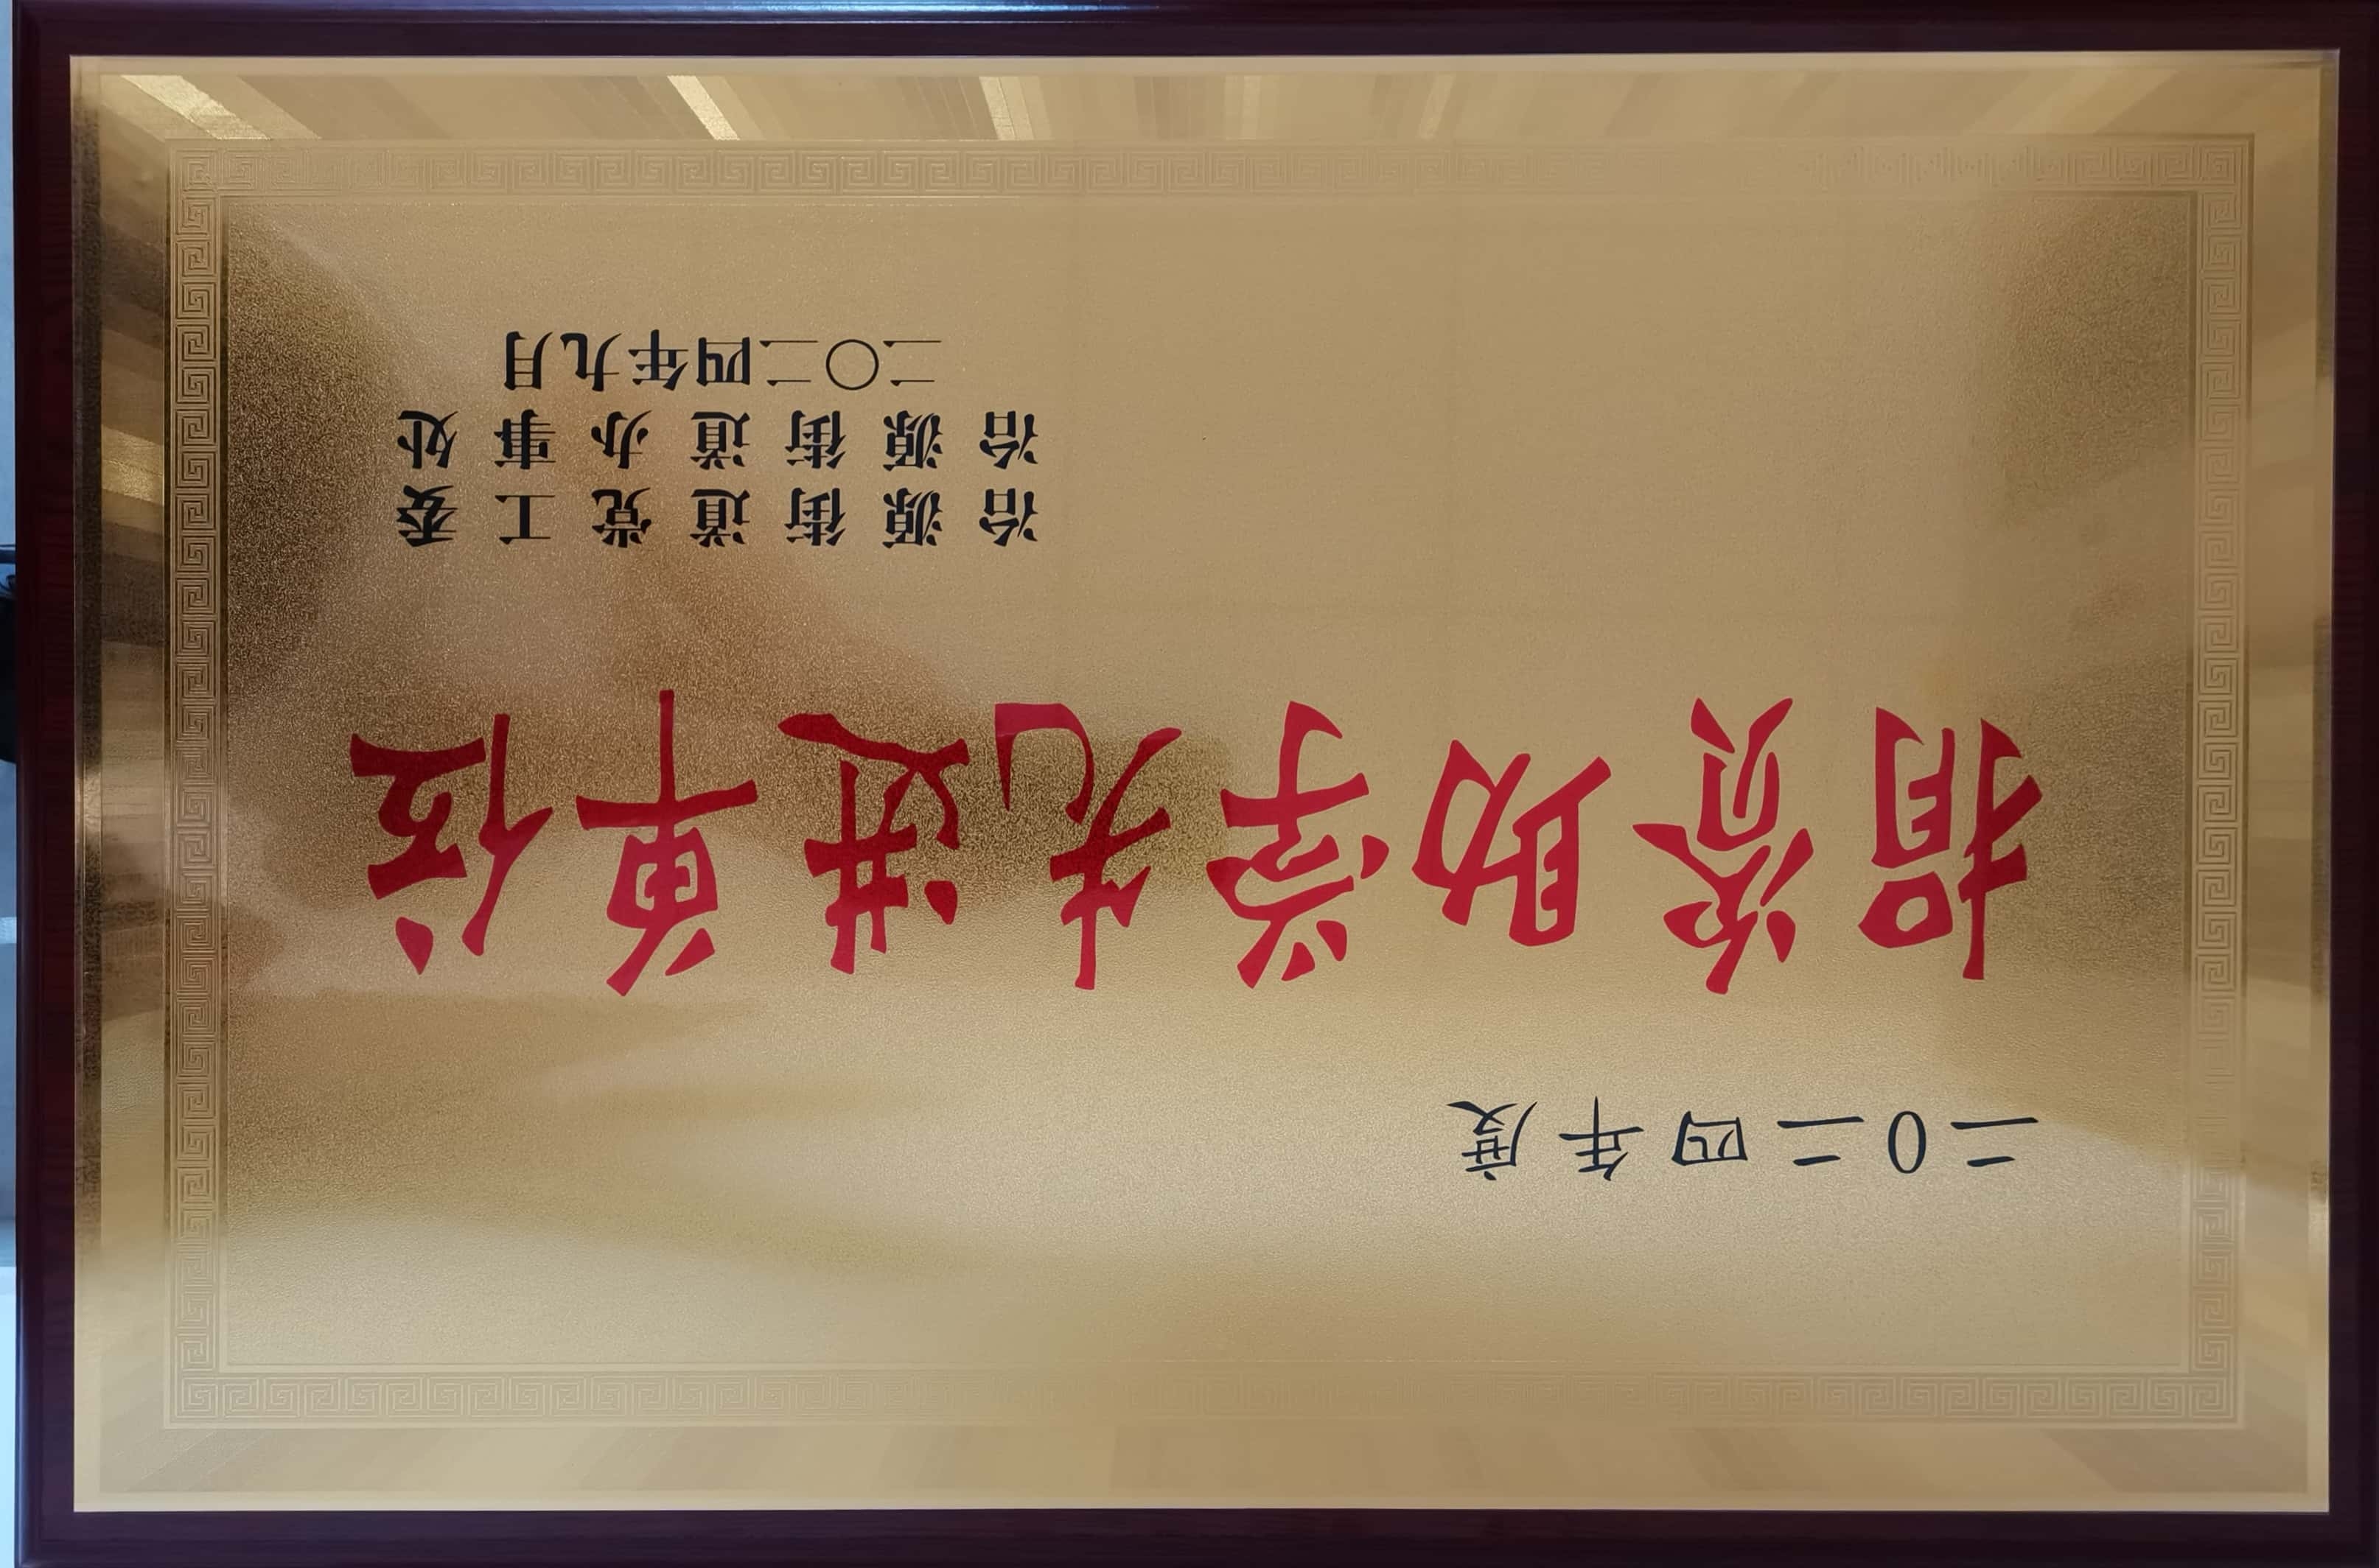 二0二四年度
捐资助学先进单位
冶源街道党工委
冶源街道办事处
二〇二四年九月